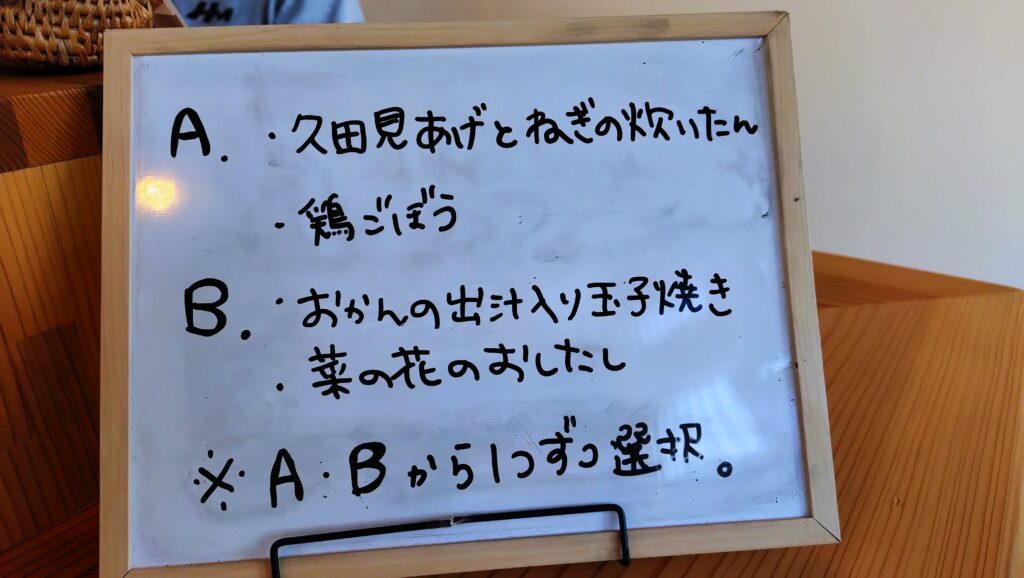 A. ・久田見あげとねぎの炊いたん
・鶏ごぼう
B. ・おかんの出汁入り玉子焼き
・菜の花のおしたし
※ A・Bから1つずつ選択。